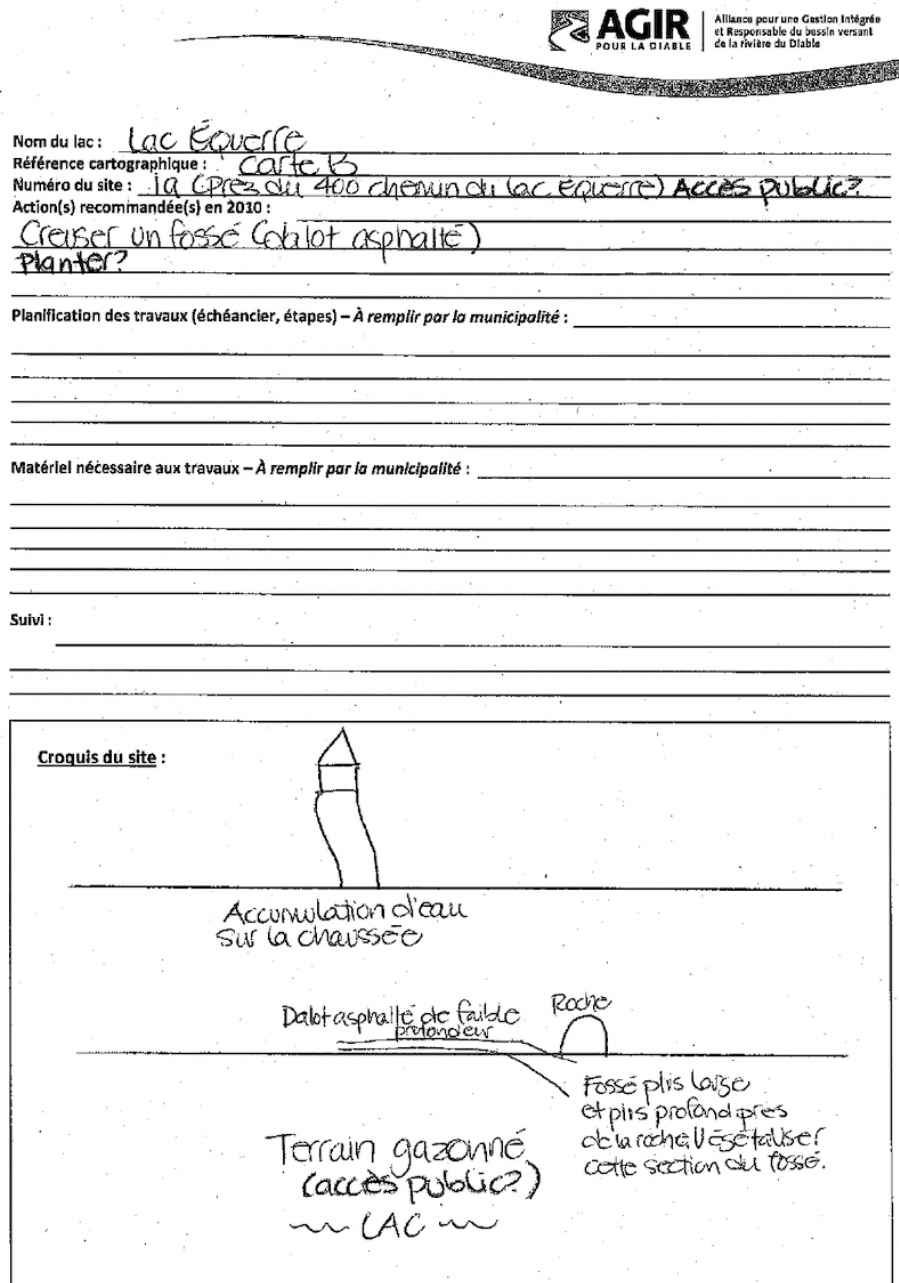 AGIR
POUR LA DIABLE
Alliance pour une Gestion Intégrée
et Responsable du bassin versant
de la rivière du Diable
Nom du lac : Lac Équerre
Référence cartographique : Carte B
Numéro du site : 1a (Près du 400 chemin du lac Équerre) Accès public?
Action(s) recommandée(s) en 2010 :
Creuser un fossé (dalot asphalté)
Planter?
Planification des travaux (échéancier, étapes) – À remplir par la municipalité :
Matériel nécessaire aux travaux – À remplir par la municipalité :
Suivi :
Croquis du site :
Accumulation d'eau
sur la chaussée
Dalot asphalté de faible
profondeur
Roche
Fossé plus large
et plus profond près
de la roche. Végétaliser
cette section du fossé.
Terrain gazonné
(accès public?)
LAC